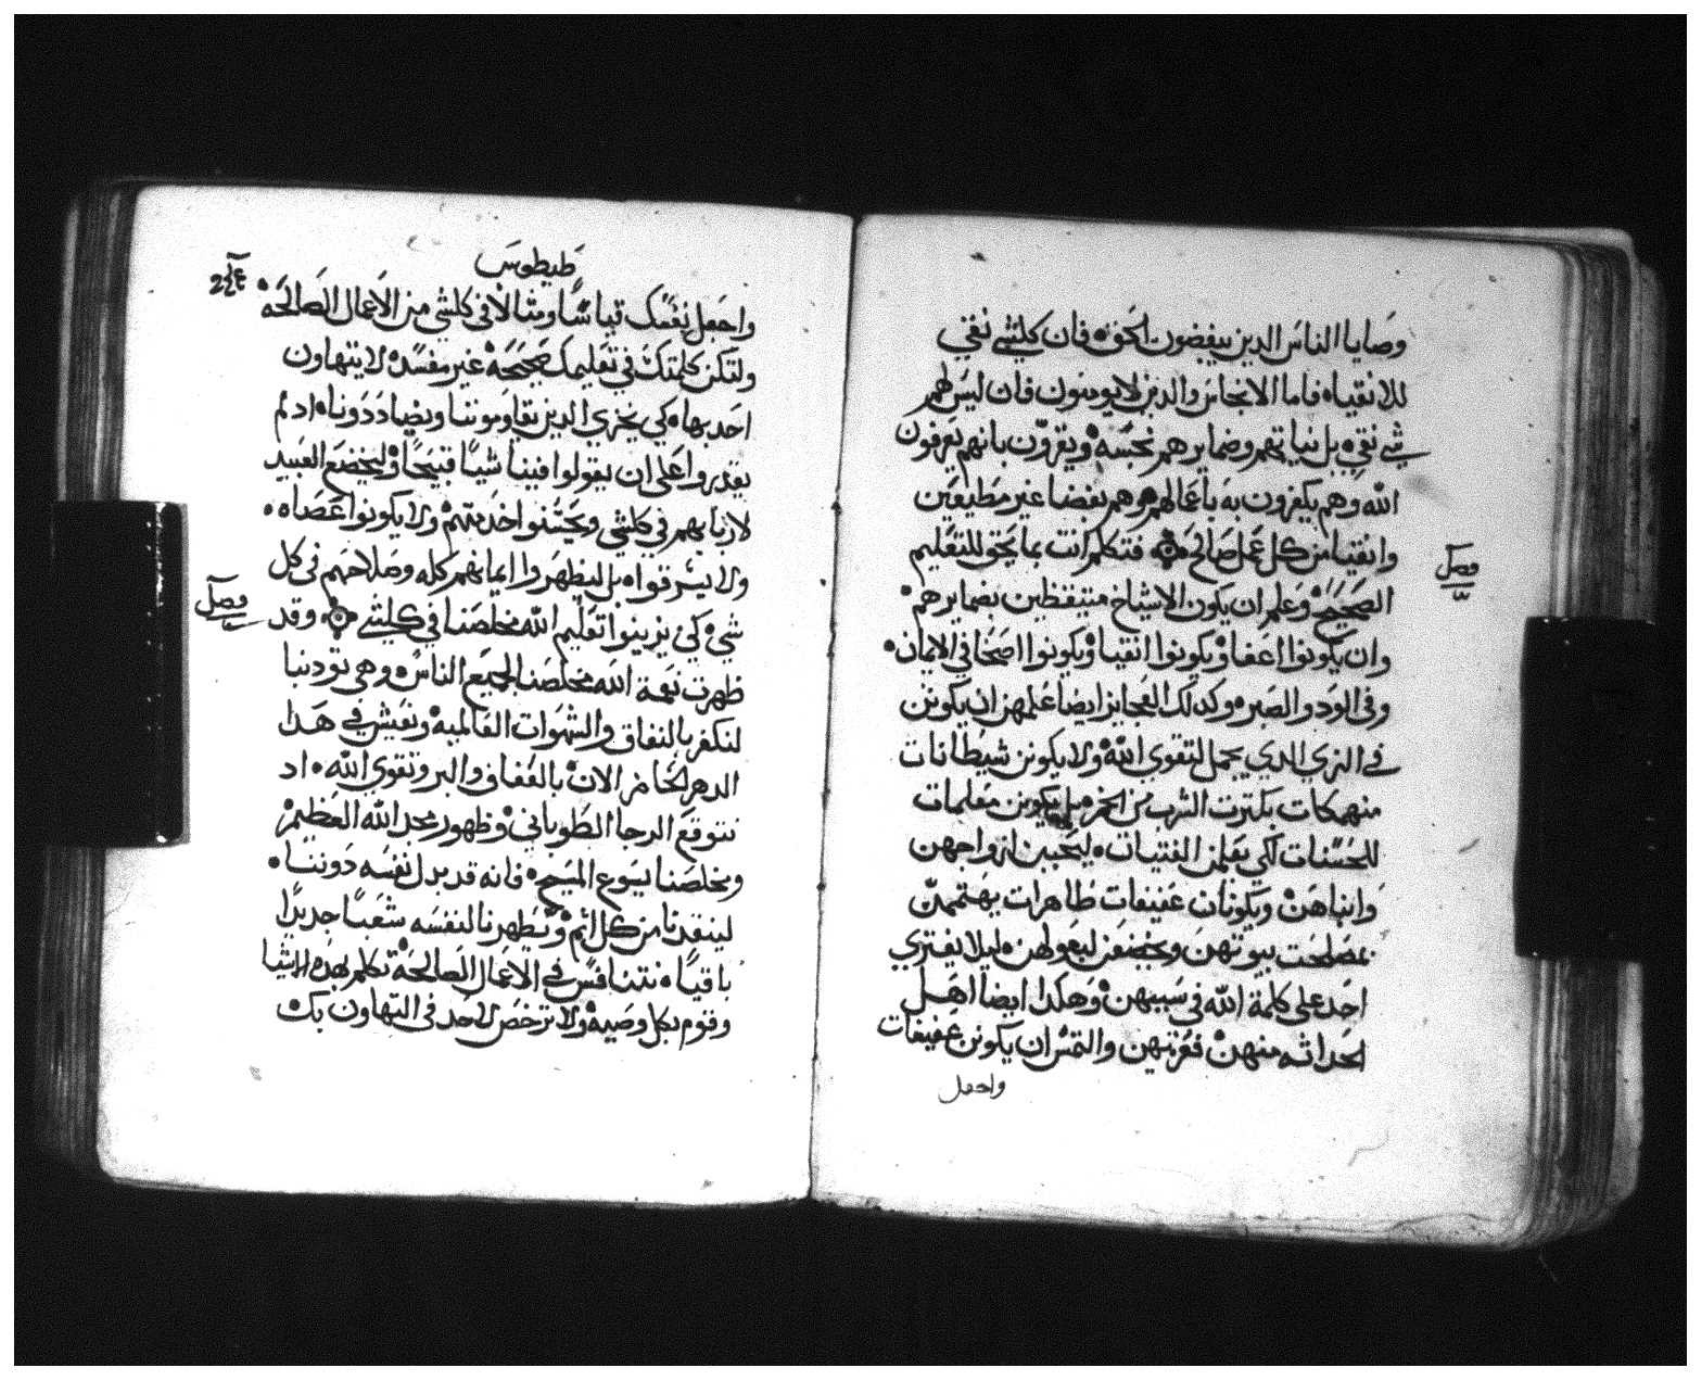 وصايا الناس الدين يبغضون الحق ۰ فان كلشي نقي
للانقياء فاما الانجاس والدين لا يومنون فان ليس لهم
شي نقي بل نياتهم وضمايرهم نجسه ويقرون بانهم يعرفون
الله وهم يكفرون به باعمالهم وهم بغضا غير مطيعين
وانقيا من كل عمل صالح ۰ فتكلم انت بما يحق للتعليم
الصحيح ۰ وعلم ان يكون الاشياخ متيقظين بضمايرهم ۰
وان يكونوا اعفا ويكونوا اتقيا ويكونوا اصحا في الايمان ۰
وفي الود والصبر ۰ وكدلك العجايز ايضا علمهن ان يكونن
في الزي الدي يجمل لتقوي الله ولا يكونن شيطانات
منهمكات بكترت الشرب من الخمر ۰ بل يكونن معلمات
للحسنات لكي يعلمن الفتيات ۰ ليحببن ازواجهن
وابناهن ويكونان عفيفات طاهرات يهتممن
بمصلحت بيوتهن ويخضعن لبعولهن ۰ ليلا يفتري
احد علي كلمة الله في سببهن ۰ وهكدا ايضا اهل
الحداثه منهن ۰ فعرفهن والتمس ان يكونن عفيفات
واجعل
فصل
طيطوس
واجعل نفسك قياسا ومثالا في كلشي من الاعمال الصالحه ۰
ولتكن كلمتك في تعليمك صحيحه غير مفسده لا يتهاون
احد بها ۰ كي يخزي الدين يقاوموننا ويضاددونا ۰ اد لم
يقدروا علي ان يقولوا فينا شيا قبيحا وليخضع العبيد
لاربابهم في كلشي ويحسنوا خدمتهم ولا يكونوا عصاه ۰
ولا يسرقوا ۰ بل ليظهروا ايمانهم كله وصلاحهم في كل
شي ۰ كي يزينوا تعليم الله مخلصنا في كلشي ۰ وقد
ظهرت نعمة الله مخلصنا لجميع الناس ۰ وهي تودبنا
لنكفر بالنفاق والشهوات العالميه ونعيش في هدا
الدهر الحاضر الان بالعفاف والبر وتقوي الله ۰ اد
نتوقع الرجا الطوباني وظهور مجد الله العظيم
ومخلصنا يسوع المسيح ۰ فانه قد بدل نفسه دوننا ۰
لينقدنا من كل اثم ويطهرنا لنفسه شعبا جديدا
باقيا ۰ نتنافس في الاعمال الصالحه تكلم بهده الاشيا
وقوم بكل وصيه ولا ترخص لاحد في التهاون بك
فصل